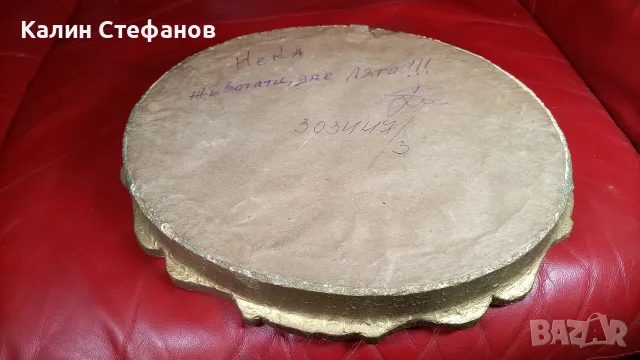 Калин Стефанов
Нека
Животът ти, две Лята!!!
303447/3
BAZAR